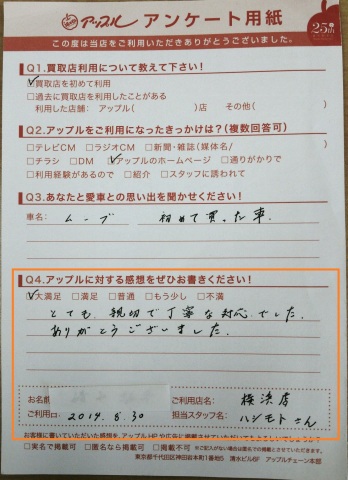 アップル アンケート用紙
25th
この度は当店をご利用いただきありがとうございました。
Q1.買取店利用について教えて下さい!
□買取店を初めて利用
□過去に買取店を利用したことがある
利用した店舗: アップル( )店 その他( )
Q2.アップルをご利用になったきっかけは?(複数回答可)
□テレビCM □ラジオCM □新聞・雑誌(媒体名/ )
□チラシ □DM □アップルのホームページ □通りがかりで
□利用経験があるので □紹介 □スタッフに誘われて
Q3.あなたと愛車との思い出を聞かせください!
車名: ムーブ 初めて買った車。
Q4.アップルに対する感想をぜひお書きください!
□大満足 □満足 □普通 □もう少し □不満
とても親切で丁寧な対応でした。
ありがとうございました。
お名前
ご利用店名: 横浜店
ご利用日: 2014.8.30
担当スタッフ名: ハシモトさん
お客様に書いていただいた感想を、アップルHPや広告に掲載させていただいてもよろしいでしょうか?
□実名で掲載可 □匿名なら掲載可 □掲載不可 ※ご記入がない場合は匿名での掲載とさせていただきます。
東京都千代田区神田岩本町1番地5 清水ビル6F アップルチェーン本部